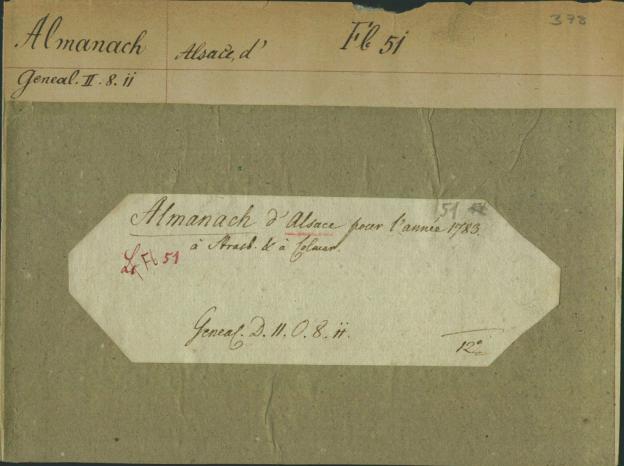 Almanach Alsace, d' Fb 51 378
Geneal. II. 8. ii
51
Almanach d'Alsace pour l'année 1783.
à Strasb. & à Colmar.
Fb 51
Geneal. D. II. O. 8. ii.
12°